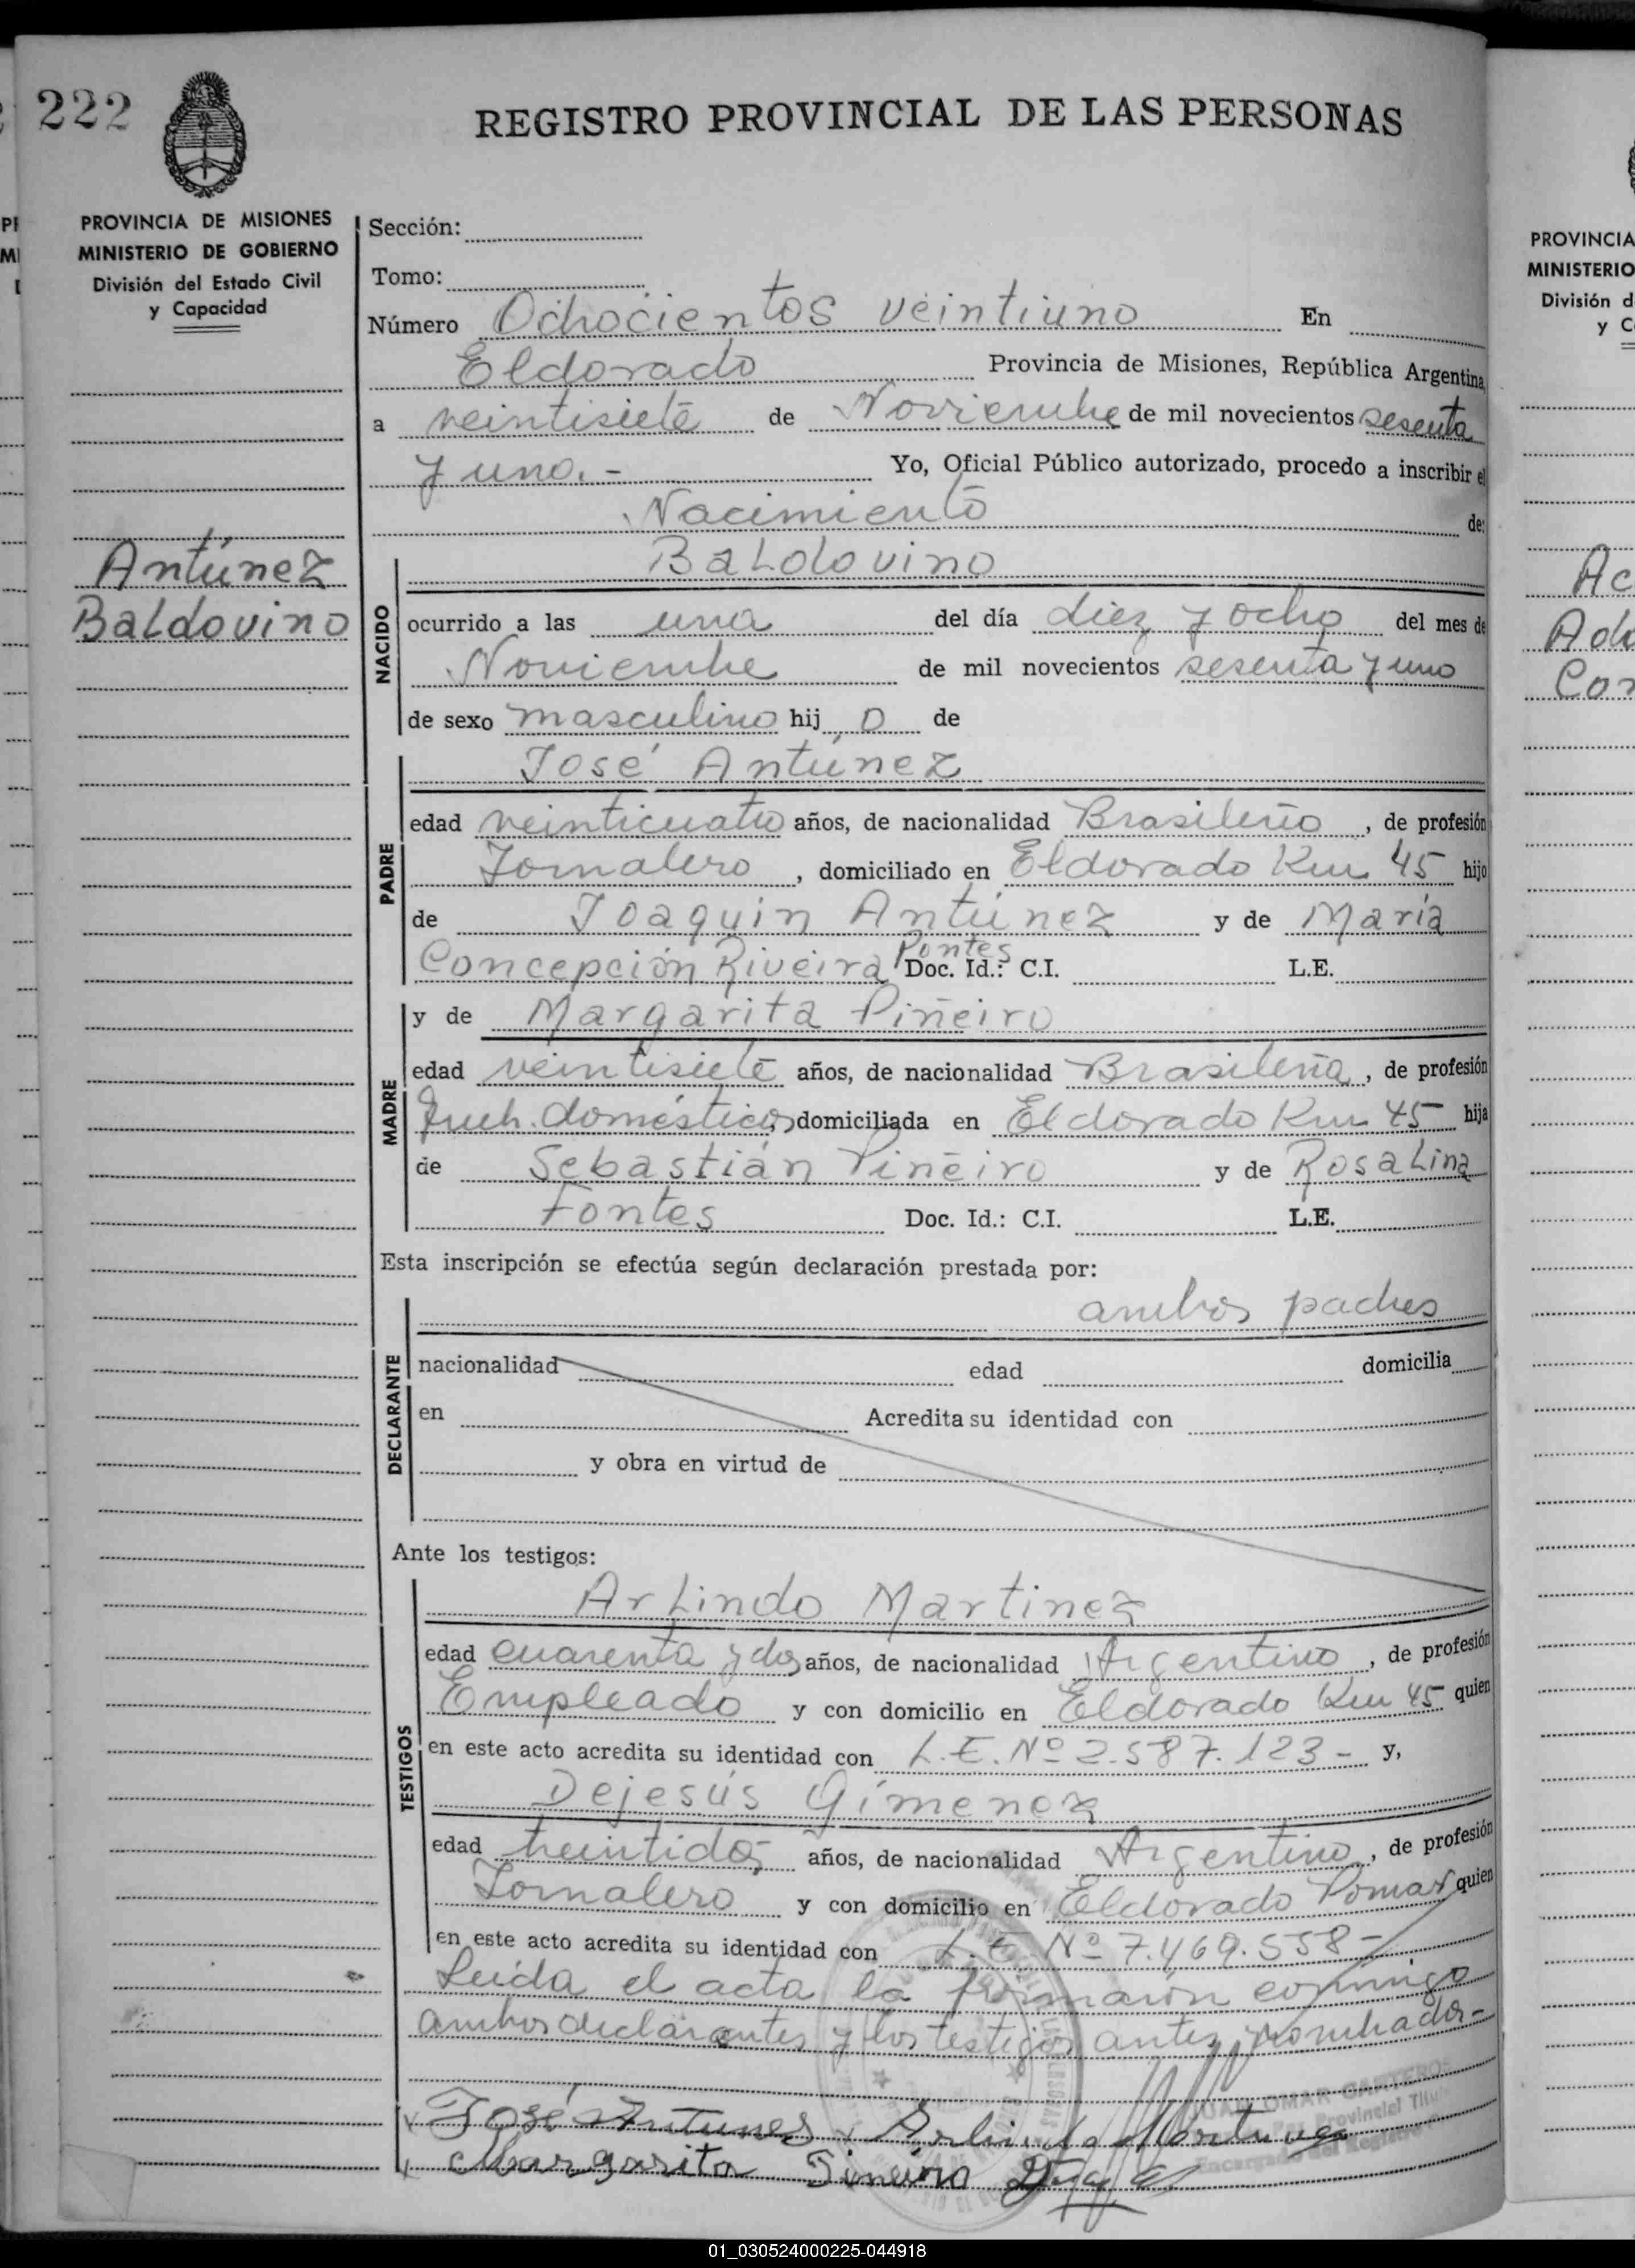 222
REGISTRO PROVINCIAL DE LAS PERSONAS
PROVINCIA DE MISIONES
MINISTERIO DE GOBIERNO
División del Estado Civil
y Capacidad
Antúnez
Baldovino
Sección:
Tomo:
Número Ochocientos veintiuno En
Eldorado Provincia de Misiones, República Argentina,
a veintisiete de Noviembre de mil novecientos sesenta
y uno.- Yo, Oficial Público autorizado, procedo a inscribir el
Nacimiento de:
NACIDO
Baldovino
ocurrido a las una del día diez y ocho del mes de
Noviembre de mil novecientos sesenta y uno
de sexo masculino hij o de
PADRE
José Antúnez
edad veinticuatro años, de nacionalidad Brasileño, de profesión
Jornalero, domiciliado en Eldorado Km 45 hijo
de Joaquin Antúnez y de María
Concepción Riveira Pontes Doc. Id.: C.I. L.E.
MADRE
y de Margarita Piñeiro
edad veintisiete años, de nacionalidad Brasileña, de profesión
Queh. domésticos, domiciliada en Eldorado Km 45 hija
de Sebastián Piñeiro y de Rosalina
Fontes Doc. Id.: C.I. L.E.
Esta inscripción se efectúa según declaración prestada por:
DECLARANTE
ambos padres
nacionalidad edad domicilia
en Acredita su identidad con
y obra en virtud de
Ante los testigos:
TESTIGOS
Arlindo Martinez
edad cuarenta y dos años, de nacionalidad Argentino, de profesión
Empleado y con domicilio en Eldorado Km 45 quien
en este acto acredita su identidad con L.E. Nº 2.587.123- y,
Dejesús Gimenez
edad treintidos años, de nacionalidad Argentino, de profesión
Jornalero y con domicilio en Eldorado Pomar quien
en este acto acredita su identidad con L.E. Nº 7.469.558-
Leida el acta la firmaron conmigo
ambos declarantes y los testigos antes nombrados-
José Antunes Arlindo Martinez
Margarita Pineiro
JUAN OMAR
Provincial
Encargado del Registro
PROVINCIA
MINISTERIO
División d
y C
Ac
Ado
Con
01_030524000225-044918